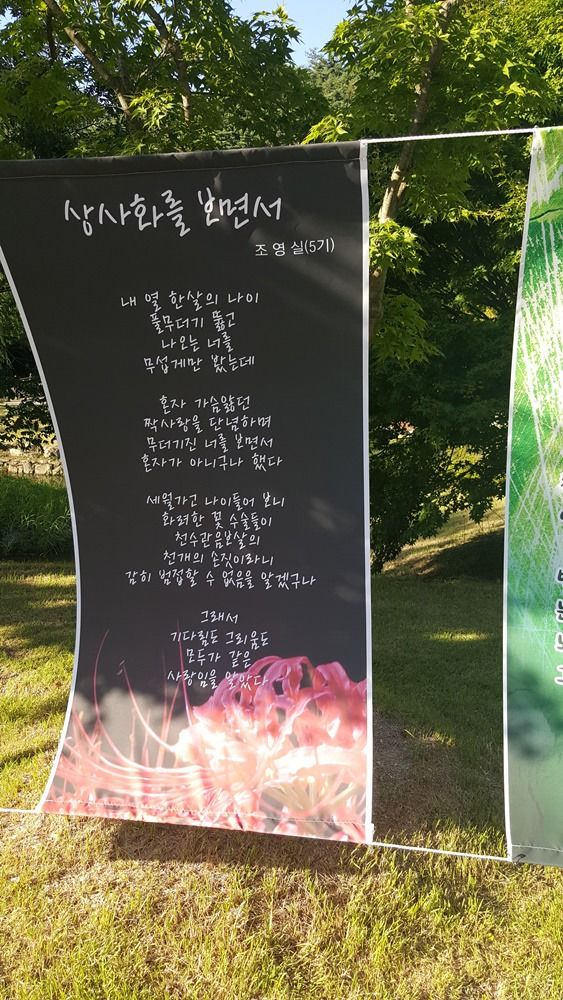 상사화를 보면서
조영실(5기)
내 열 한살의 나이
풀무더기 뚫고
나오는 너를
무섭게만 봤는데
혼자 가슴앓던
짝사랑을 단념하며
무더기진 너를 보면서
혼자가 아니구나 했다
세월가고 나이들어 보니
화려한 꽃 수술들이
천수관음보살의
천개의 손짓이라니
감히 범접할 수 없음을 알겠구나
그래서
기다림도 그리움도
모두가 같은
사랑임을 알았다